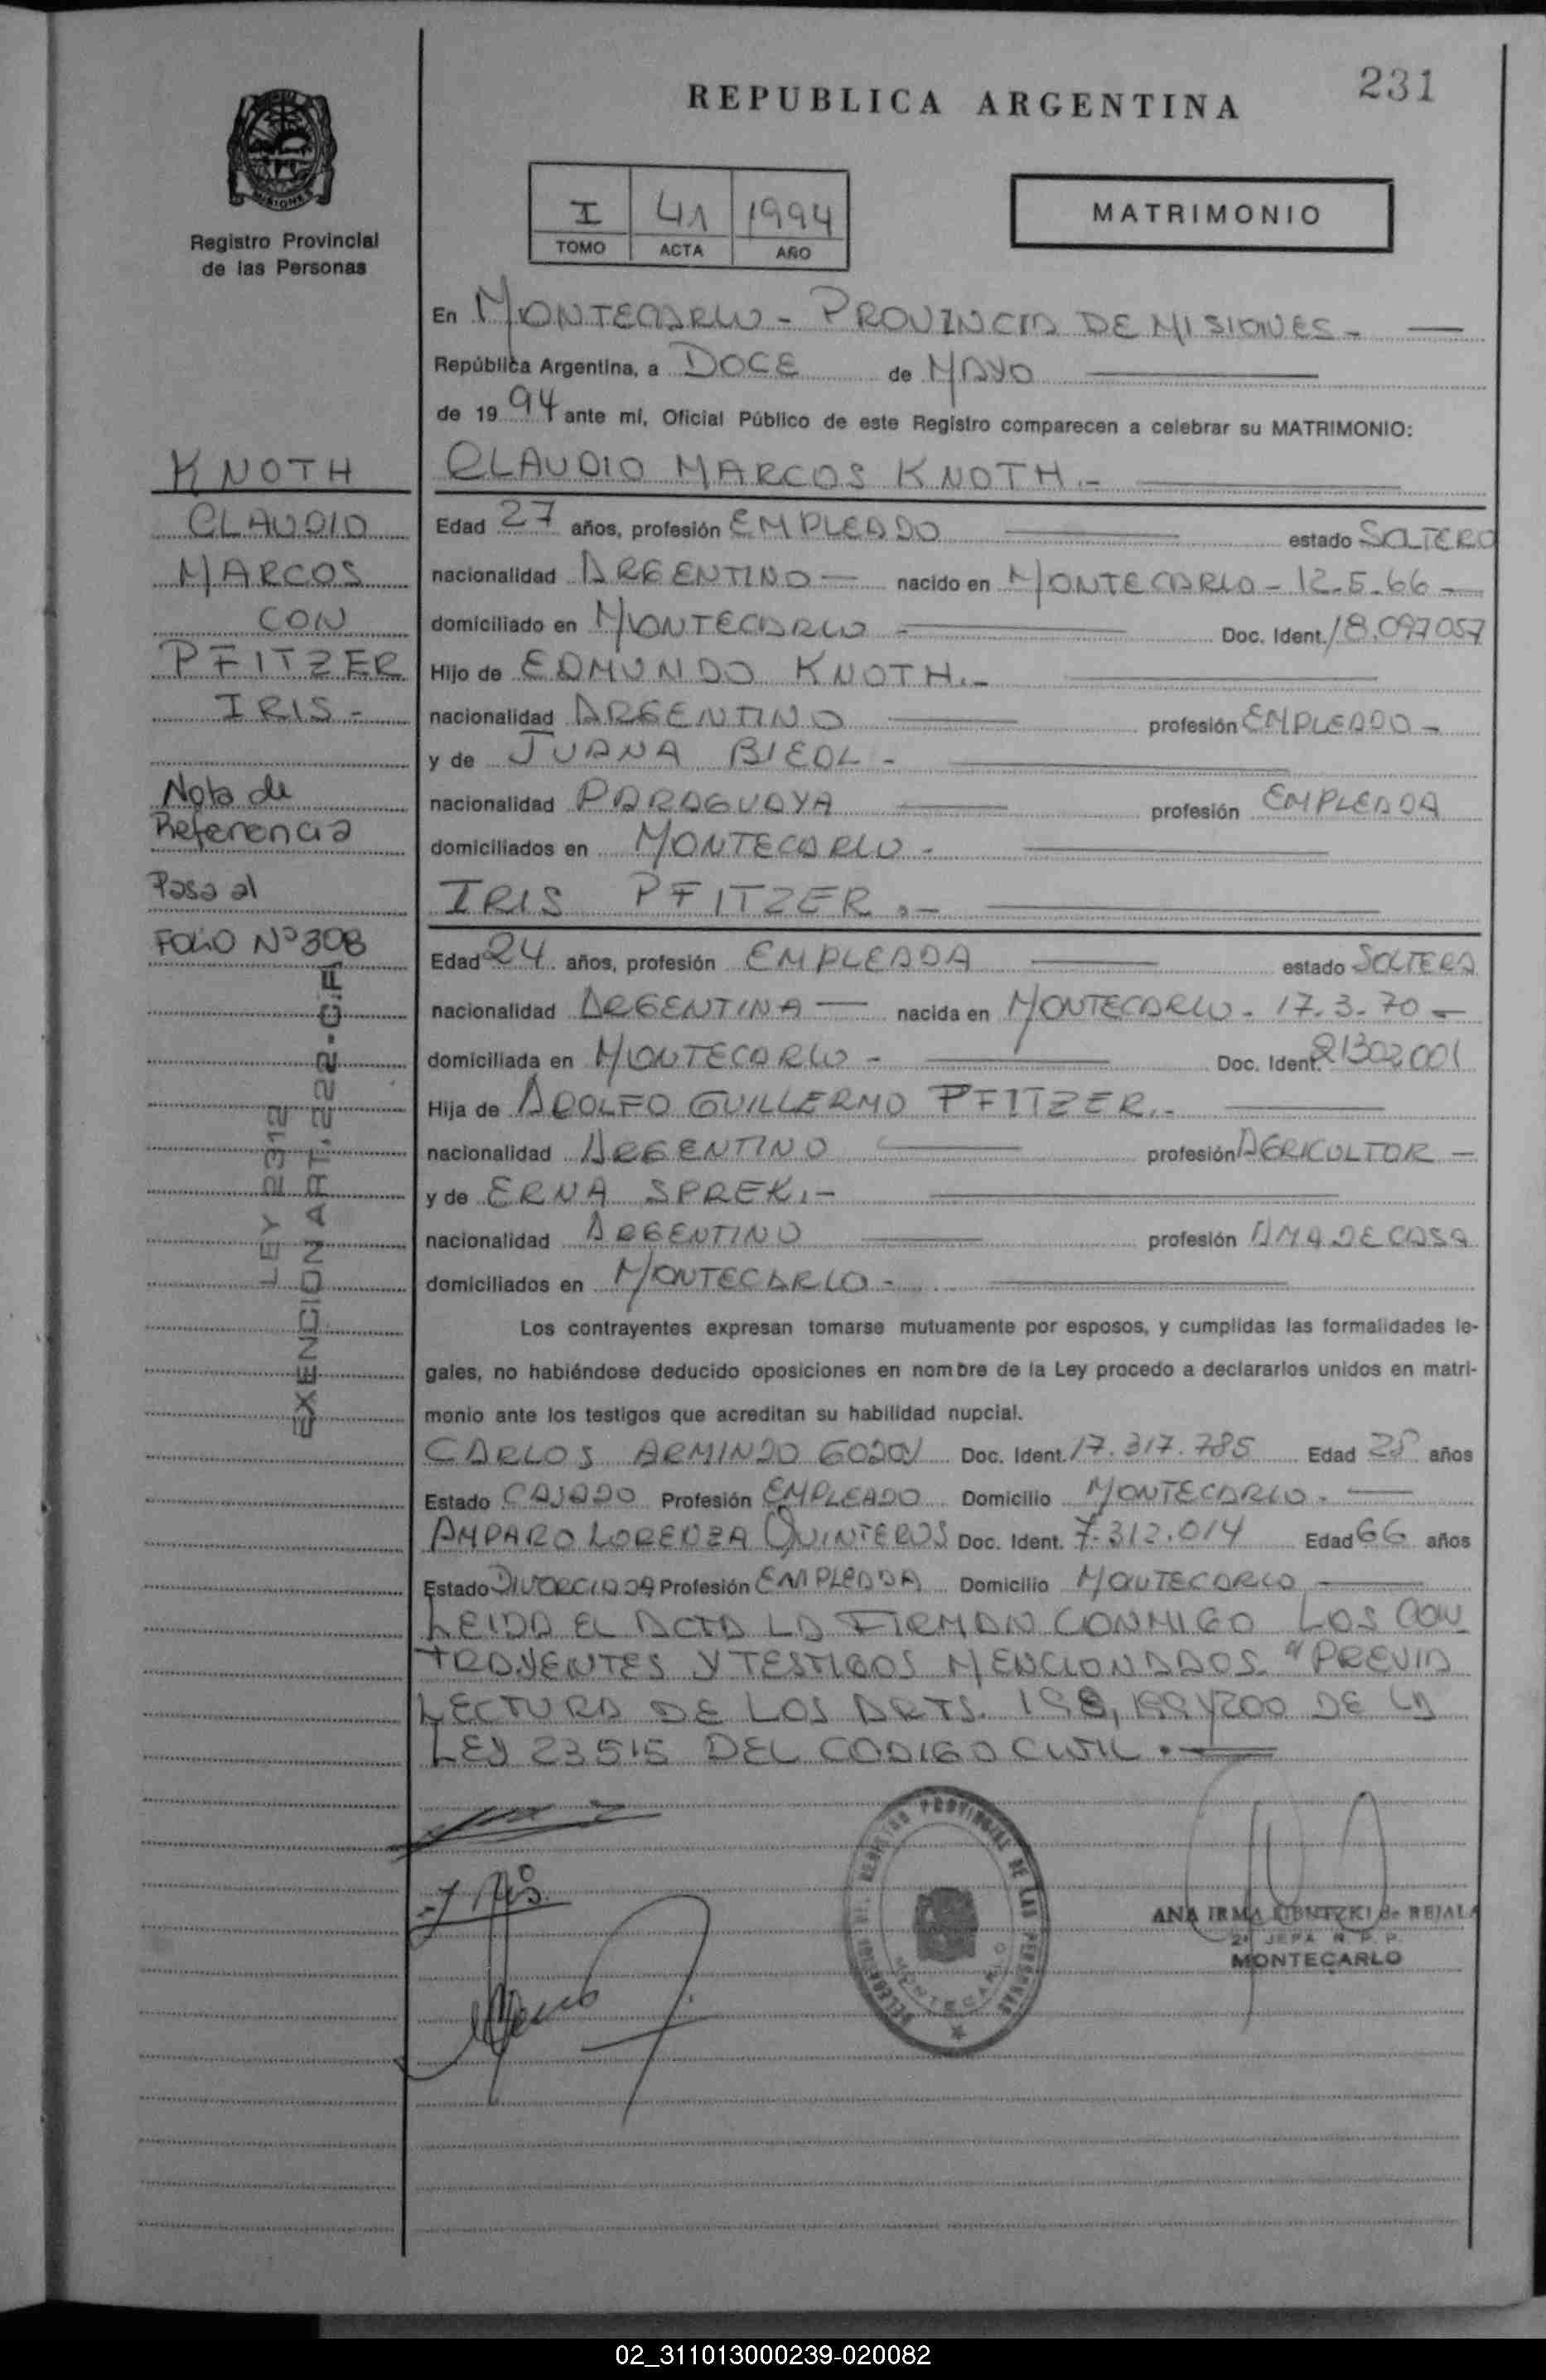 231
REPUBLICA ARGENTINA
MISIONES
Registro Provincial
de las Personas
I 41 1994
TOMO ACTA AÑO
MATRIMONIO
En MONTECARLO - PROVINCIA DE MISIONES -
República Argentina, a DOCE de MAYO
de 1994 ante mí, Oficial Público de este Registro comparecen a celebrar su MATRIMONIO:
KNOTH
CLAUDIO
MARCOS
CON
PFITZER
IRIS -
Nota de
Referencia
Pasa al
FOLIO Nº 308
LEY 2312
EXENCION ART. 222 - C.F.
CLAUDIO MARCOS KNOTH.-
Edad 27 años, profesión EMPLEADO estado SOLTERO
nacionalidad ARGENTINO - nacido en MONTECARLO - 12.5.66 -
domiciliado en MONTECARLO - Doc. Ident. 18.097057
Hijo de EDMUNDO KNOTH.-
nacionalidad ARGENTINO profesión EMPLEADO -
y de JUANA BIEDL -
nacionalidad PARAGUAYA profesión EMPLEADA
domiciliados en MONTECARLO -
IRIS PFITZER.-
Edad 24 años, profesión EMPLEADA estado SOLTERA
nacionalidad ARGENTINA - nacida en MONTECARLO - 17.3.70 -
domiciliada en MONTECARLO - Doc. Ident. 21302001
Hija de ADOLFO GUILLERMO PFITZER.-
nacionalidad ARGENTINO profesión AGRICULTOR -
y de ERNA SPREK.-
nacionalidad ARGENTINO profesión AMA DE CASA
domiciliados en MONTECARLO -
Los contrayentes expresan tomarse mutuamente por esposos, y cumplidas las formalidades le-
gales, no habiéndose deducido oposiciones en nombre de la Ley procedo a declararlos unidos en matri-
monio ante los testigos que acreditan su habilidad nupcial.
CARLOS ARMINDO GODOY Doc. Ident. 17.317.785 Edad 28 años
Estado CASADO Profesión EMPLEADO Domicilio MONTECARLO -
AMPARO LORENZA QUINTEROS Doc. Ident. 7.312.014 Edad 66 años
Estado DIVORCIADA Profesión EMPLEADA Domicilio MONTECARLO
LEIDA EL ACTA LA FIRMAN CONMIGO LOS CON
TRAYENTES Y TESTIGOS MENCIONADOS "PREVIA
LECTURA DE LOS ARTS. 198, 199 Y 200 DE LA
LEY 23515 DEL CODIGO CIVIL.
PROVINCIAL DE LAS PERSONAS
MONTECARLO
ANA IRMA de REJALA
2ª JEFA R. P. P.
MONTECARLO
02_311013000239-020082